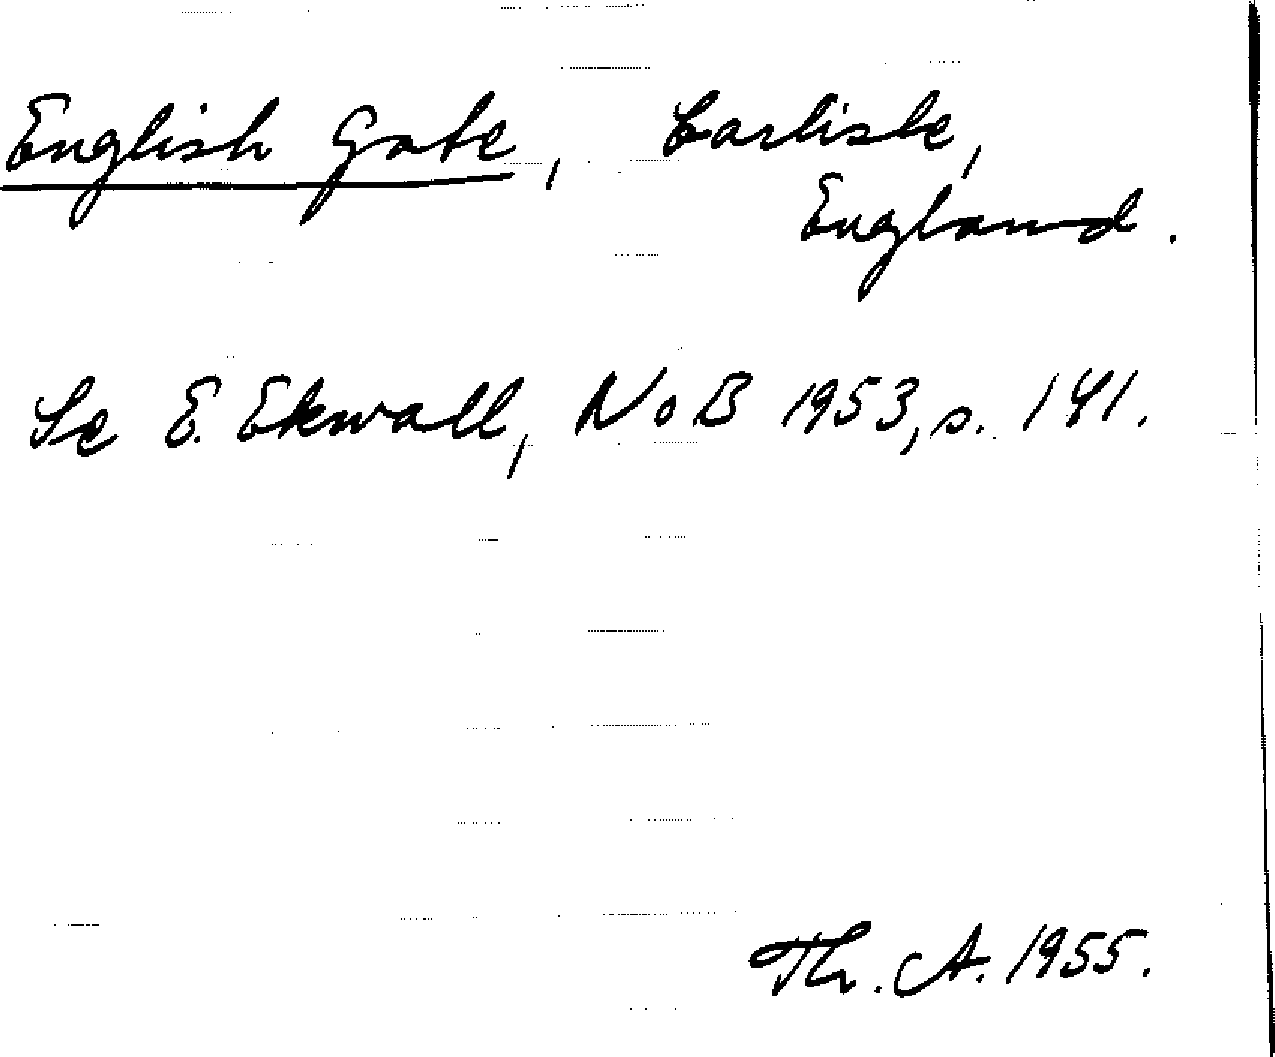 English Gate, Carlisle,
England.
Se E. Ekwall, NoB 1953, s. 141.
Th. A. 1955.